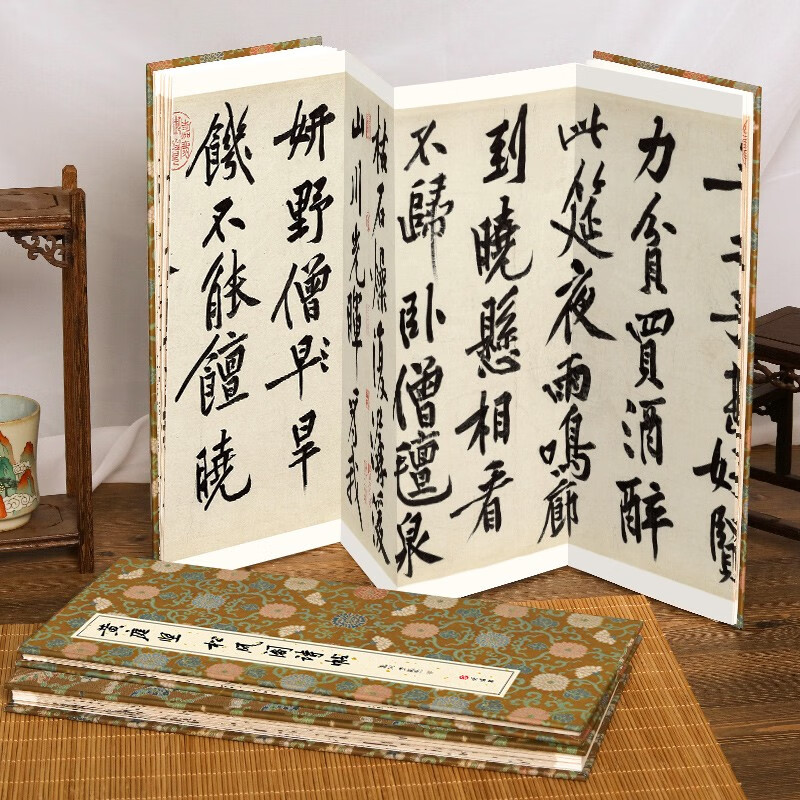 二三子甚好賢
力貧買酒醉
此筵夜雨鳴廊
到曉懸相看
不歸臥僧氈泉
枯石燥復潺湲
山川光暉為我
妍野僧早旱
饑不能饘曉
黃庭堅 松風閣詩帖